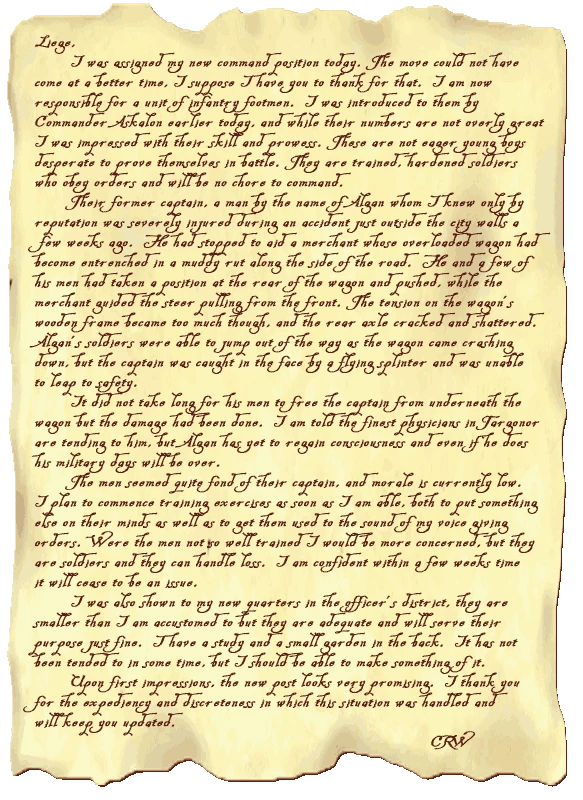 Liege,
I was assigned my new command position today. The move could not have
come at a better time, I suppose I have you to thank for that. I am now
responsible for a unit of infantry footmen. I was introduced to them by
Commander Askalon earlier today, and while their numbers are not overly great
I was impressed with their skill and prowess. These are not eager young boys
desperate to prove themselves in battle. They are trained, hardened soldiers
who obey orders and will be no chore to command.
Their former captain, a man by the name of Algan whom I knew only by
reputation was severely injured during an accident just outside the city walls a
few weeks ago. He had stopped to aid a merchant whose overloaded wagon had
become entrenched in a muddy rut along the side of the road. He and a few of
his men had taken a position at the rear of the wagon and pushed, while the
merchant guided the steer pulling from the front. The tension on the wagon's
wooden frame became too much though, and the rear axle cracked and shattered.
Algan's soldiers were able to jump out of the way as the wagon came crashing
down, but the captain was caught in the face by a flying splinter and was unable
to leap to safety.
It did not take long for his men to free the captain from underneath the
wagon but the damage had been done. I am told the finest physicians in Targonor
are tending to him, but Algan has yet to regain consciousness and even if he does
his military days will be over.
The men seemed quite fond of their captain, and morale is currently low.
I plan to commence training exercises as soon as I am able, both to put something
else on their minds as well as to get them used to the sound of my voice giving
orders. Were the men not so well trained I would be more concerned, but they
are soldiers and they can handle loss. I am confident within a few weeks time
it will cease to be an issue.
I was also shown to my new quarters in the officer's district, they are
smaller than I am accustomed to but they are adequate and will serve their
purpose just fine. I have a study and a small garden in the back. It has not
been tended to in some time, but I should be able to make something of it.
Upon first impressions, the new post looks very promising. I thank you
for the expediency and discreteness in which this situation was handled and
will keep you updated.
CRW